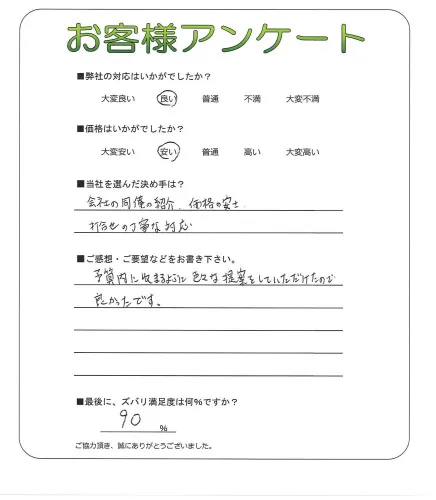 お客様アンケート
■弊社の対応はいかがでしたか？
大変良い 良い 普通 不満 大変不満
■価格はいかがでしたか？
大変安い 安い 普通 高い 大変高い
■当社を選んだ決め手は？
会社の同僚の紹介、価格の安さ
打合せの丁寧な対応
■ご感想・ご要望などをお書き下さい。
予算内に収まるように色々な提案をしていただけたので
良かったです。
■最後に、ズバリ満足度は何%ですか？
90 %
ご協力頂き、誠にありがとうございました。